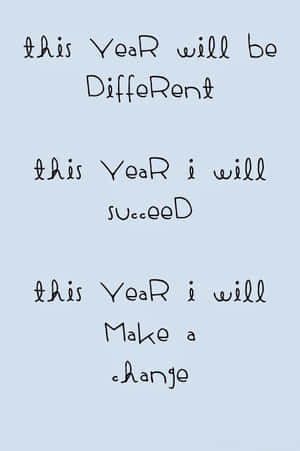 this YeaR will be
DiffeRent
this YeaR i will
succeeD
this YeaR i will
Make a
change